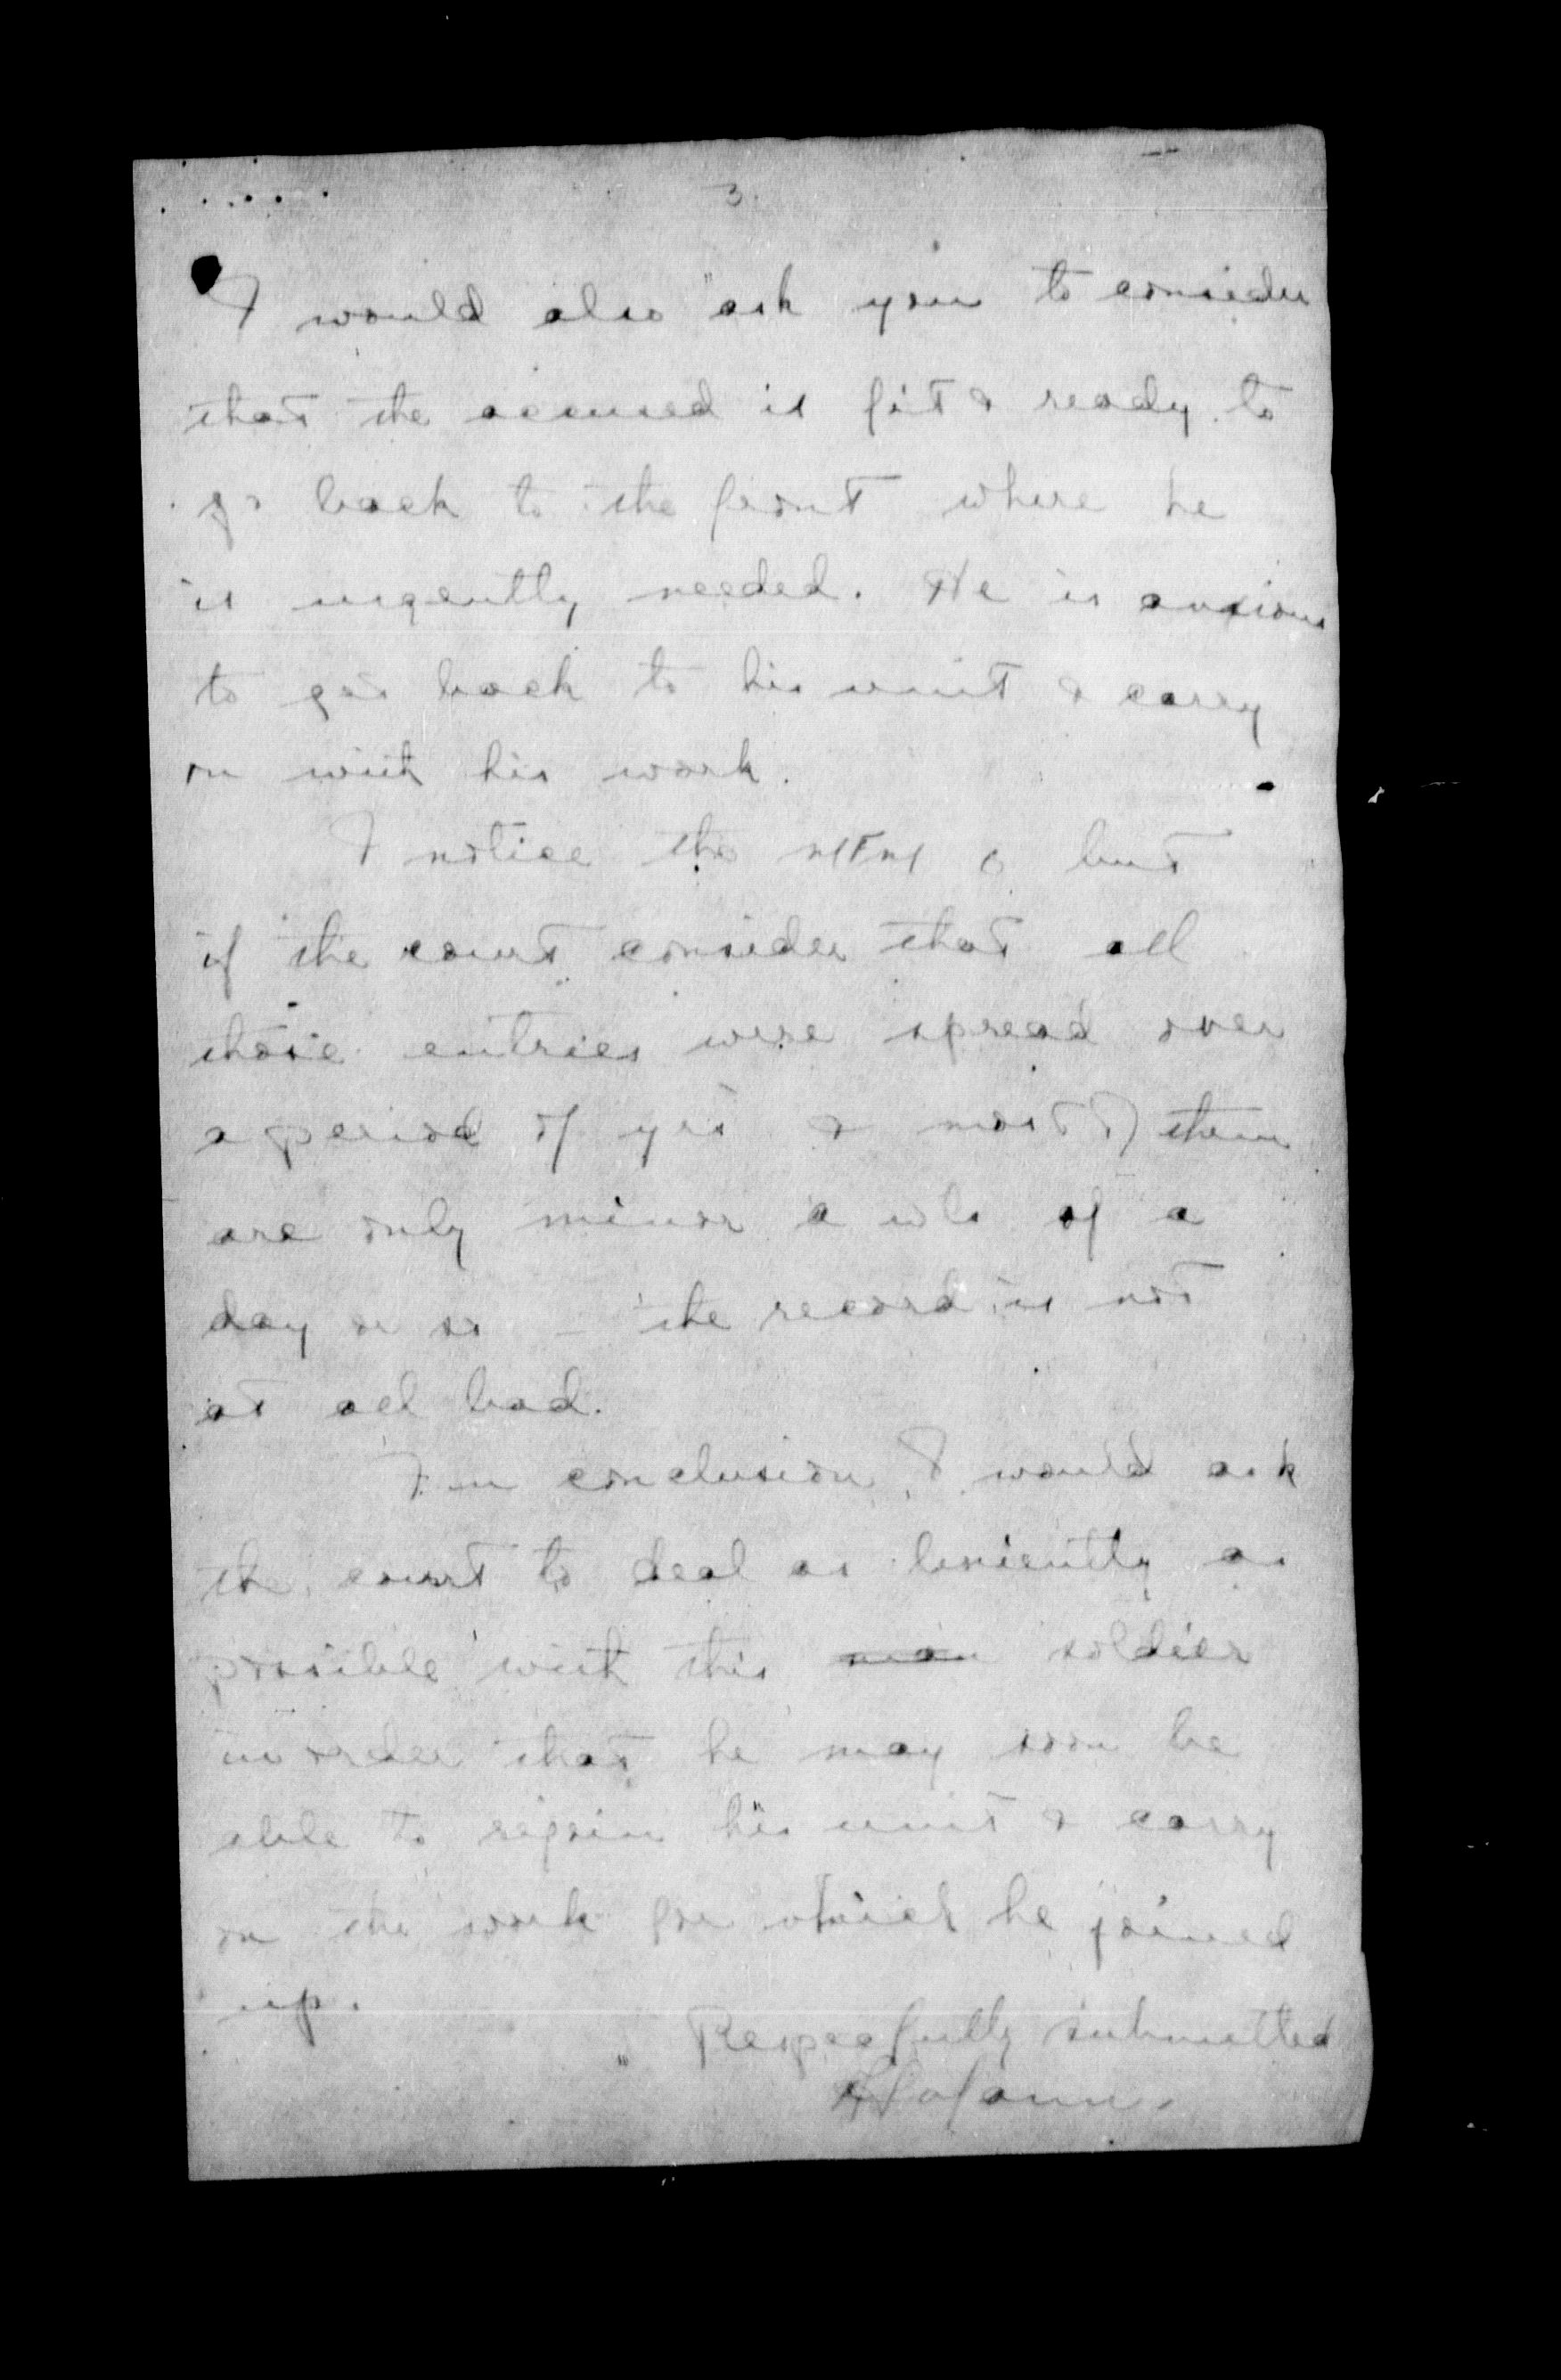 3.
I would also ask you to consider
that the accused is fit & ready to
go back to the front where he
is urgently needed. He is anxious
to get back to his unit & carry
on with his work.
I notice the but
if the court consider that all
those entries were spread over
a period of yrs & most of them
are only minor a wls of a
day or so - the record is not
at all bad.
In conclusion, I would ask
the court to deal as leniently as
possible with this man soldier
in order that he may soon be
able to rejoin his unit & carry
on the work for which he joined
up.
Respecfully submitted